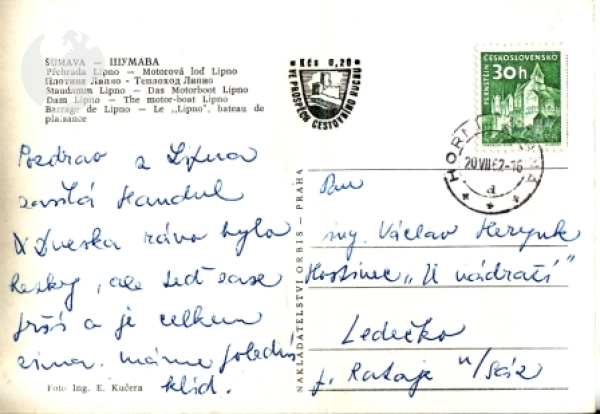 ŠUMAVA — ШУМАВА
Přehrada Lipno — Motorová loď Lipno
Плотина Липно - Теплоход Липно
Staudamm Lipno — Das Motorboot Lipno
Dam Lipno — The motor-boat Lipno
Barrage de Lipno — Le „Lipno", bateau de
plaisance
Kčs 0,20
VE PROSPĚCH CESTOVNÍHO RUCHU
ČESKOSLOVENSKO
30h
PERNŠTEJN
HOR
20.VII.62-16
d
Pozdrav z Lipna
zasílá Handul
Dneska ráno bylo
hezky, ale teď zase
prší a je celkem
zima. máme
klid.
Foto Ing. E. Kučera
NAKLADATELSTVÍ ORBIS — PRAHA
Pan
ing. Václav
Hostinec „U nádraží"
Ledečko
p. Rataje n/Sáz